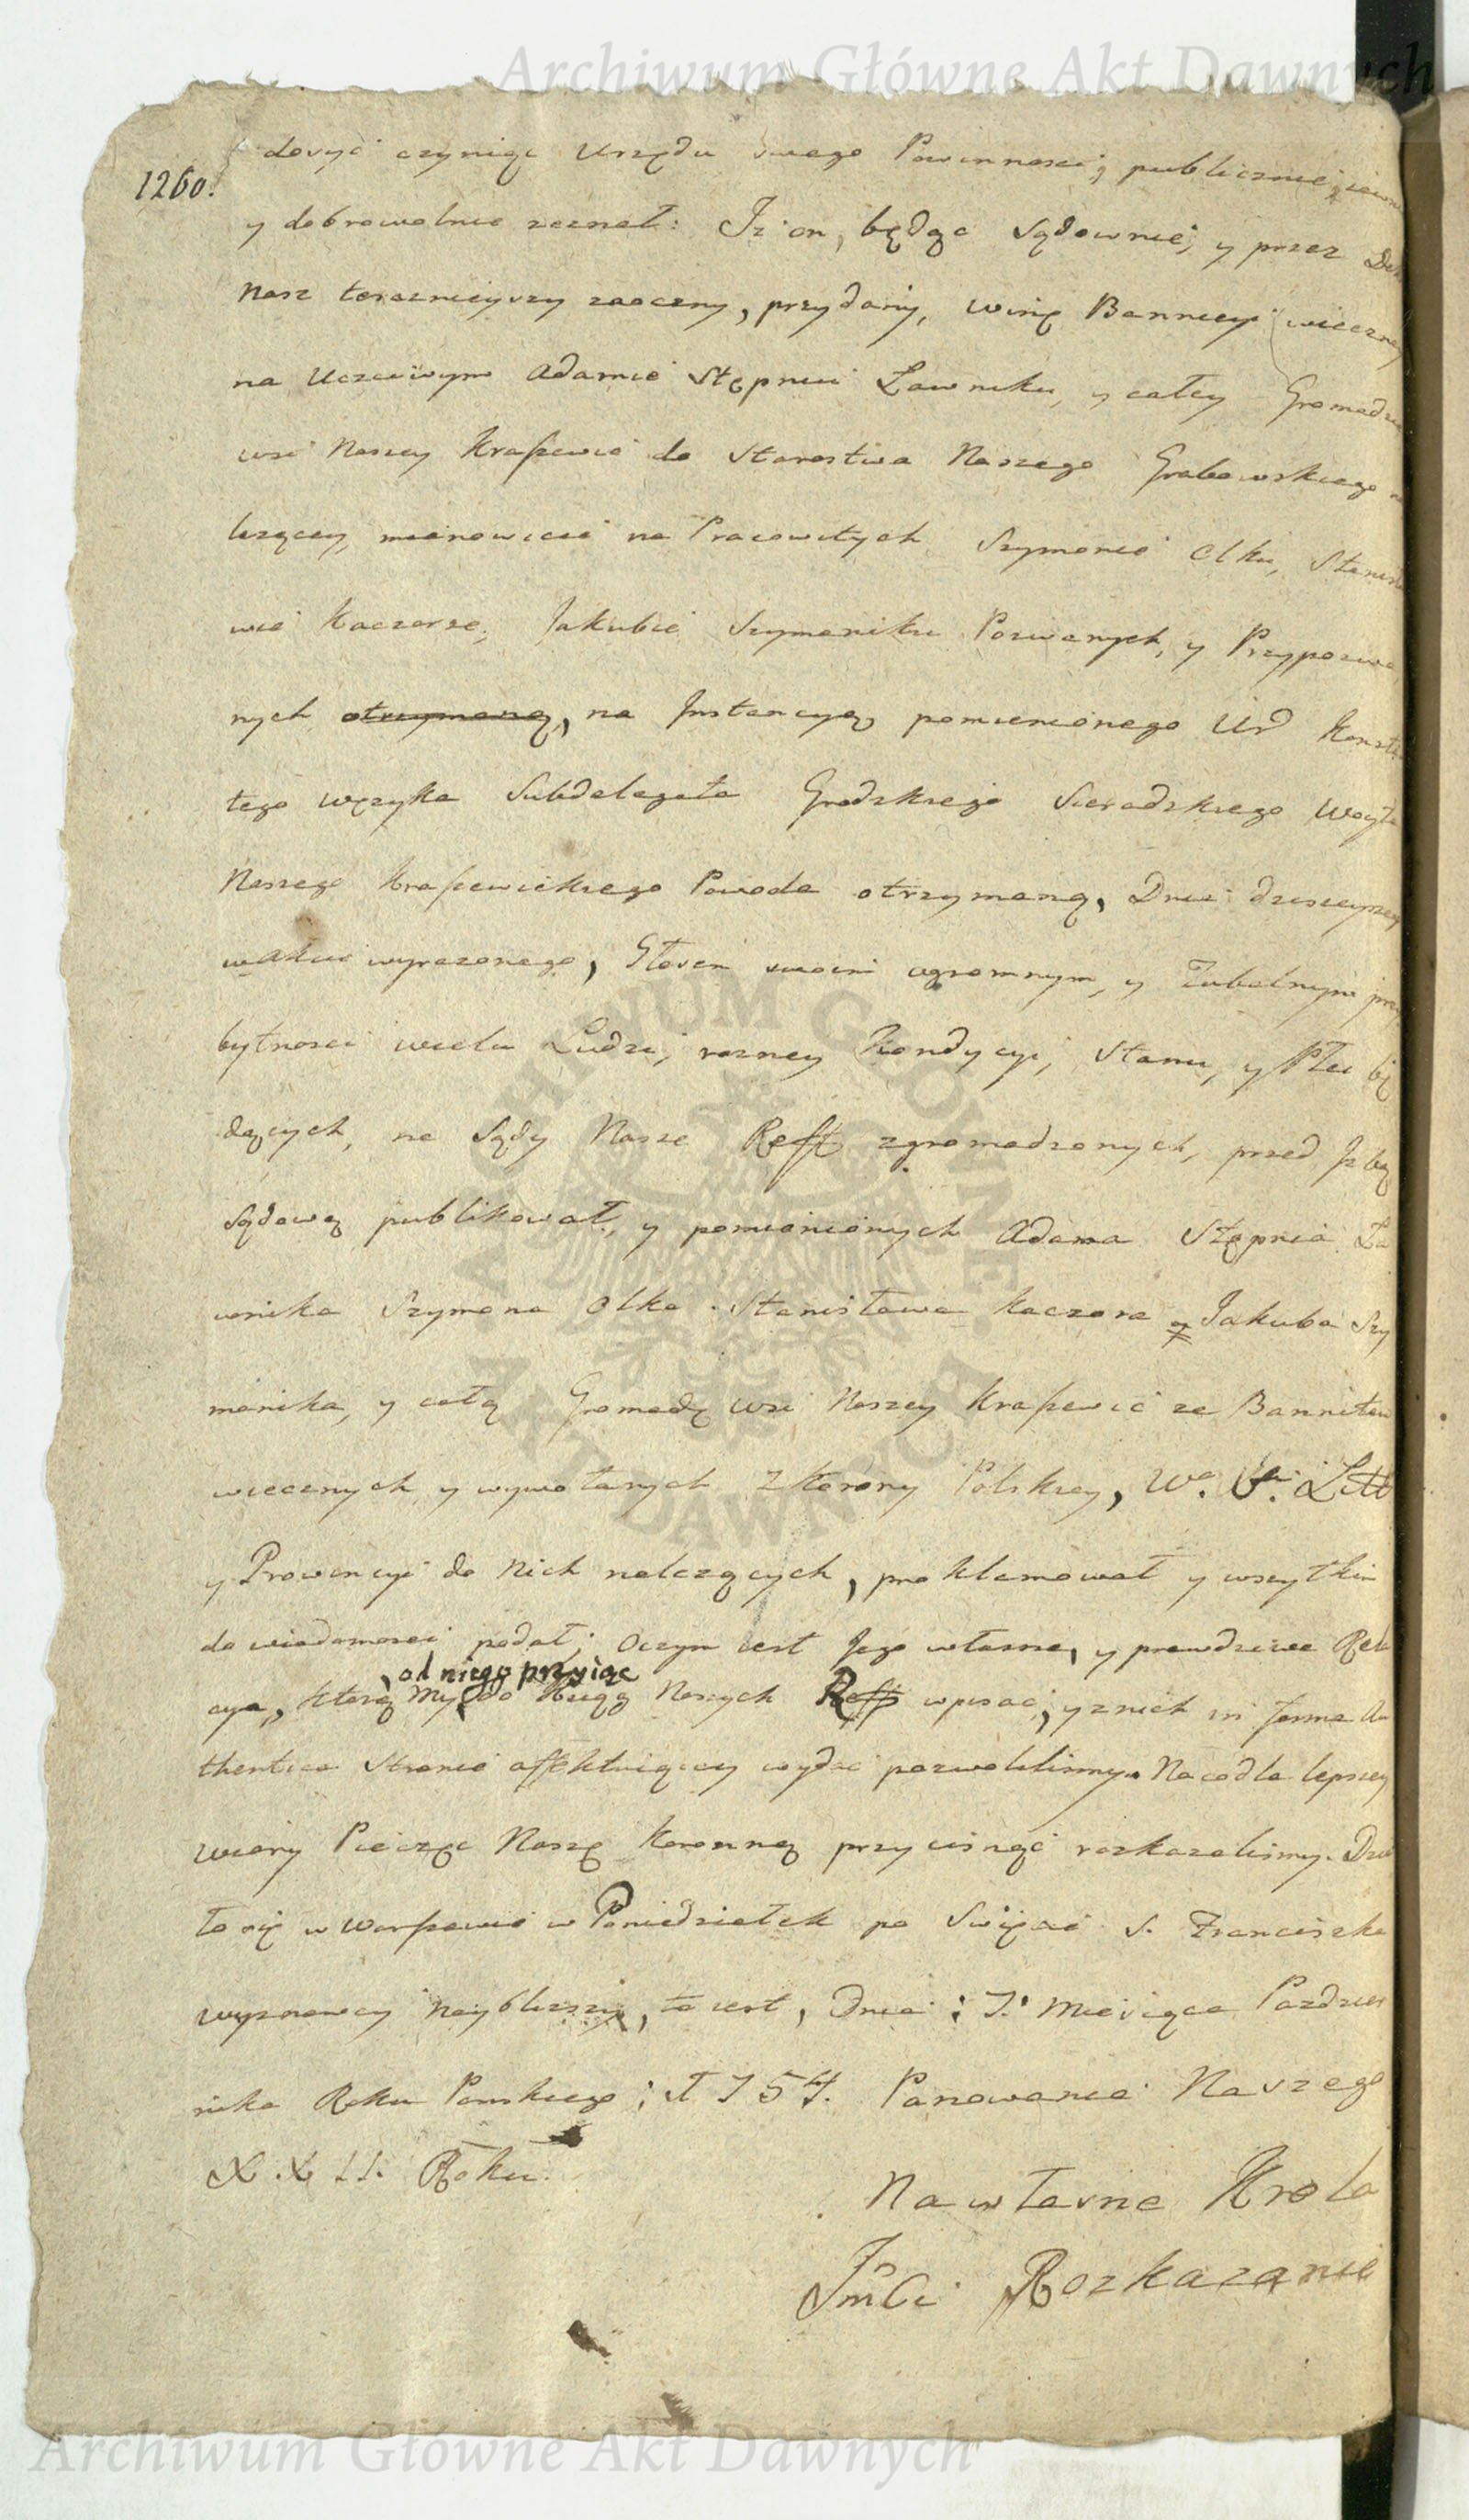 Archiwum Główne Akt Dawnych
1260.
dosyć czyniąc Urzędu swego Powinnosci, publicznie, iawnie
y dobrowolnie zeznał: Iz on, będąc Sądownie, y przez
Nasz terazniejszy zaoczny, przydany, winę Bannicyi wieczney
na Uczciwym Adamie Stępniu Ławniku, y całey Gromadzie
wsi Naszey Kraszewic do Starostwa Naszego Grabowskiego na
lezącey, mianowicie na Pracowitych Szymonie Olku, Stanisła
wie Kaczorze, Jakubie Szymaniku Pozwanych, y Przypozwa
nych otrzymaną, na Instancyą pomienionego Ur
tego Węzyka Subdelegata Grodzkiego Sieradzkiego Woyta
Naszego Kraszewickiego Powoda otrzymaną, Dnia dzisieyszego
w Akcie wyrazonego, Głosem swoim ogromnym, y Zubelnym przy
bytnosci wielu Ludzi, rozney Kondycyi, Stanu, y Płci bę
dących, na Sądy Nasze Reff zgromadzonych, przed Izbą
Sądową publikował, y pomienionych Adama Stępnia Ła
wnika Szymona Olka Stanisława Kaczora y Jakuba Szy
manika, y całą Gromadę wsi Naszey Kraszewic za Bannitow
wiecznych y wywołanych z Korony Polskiey, W. X. Litt
y Prowincyi do Nich nalezących, proklamował y wszytkim
do wiadomosci podał; Oczym iest Jego własna, y prawdziwa Rela
od niego przyiąc
cya, którą My do Xiąg Naszych Reff wpisac, y znich in forma Au
thentica Stronie affektuiącey wydac pozwolilismy. Na co dla lepszey
wiary Pieczęc Naszę Koronną przycisnąć rozkazalismy. Dzia
ło się w Warszawie w Poniedziałek po Swięcie S. Franciszka
wyznawcy nayblizszy, to iest, Dnia: 7. Miesiąca Pazdzier
nika Roku Panskiego: 1754. Panowania Naszego
XXII. Roku.
Na własne Krola
JmCi Rozkazanie
ARCHIWUM GŁÓWNE AKT DAWNYCH
Archiwum Główne Akt Dawnych